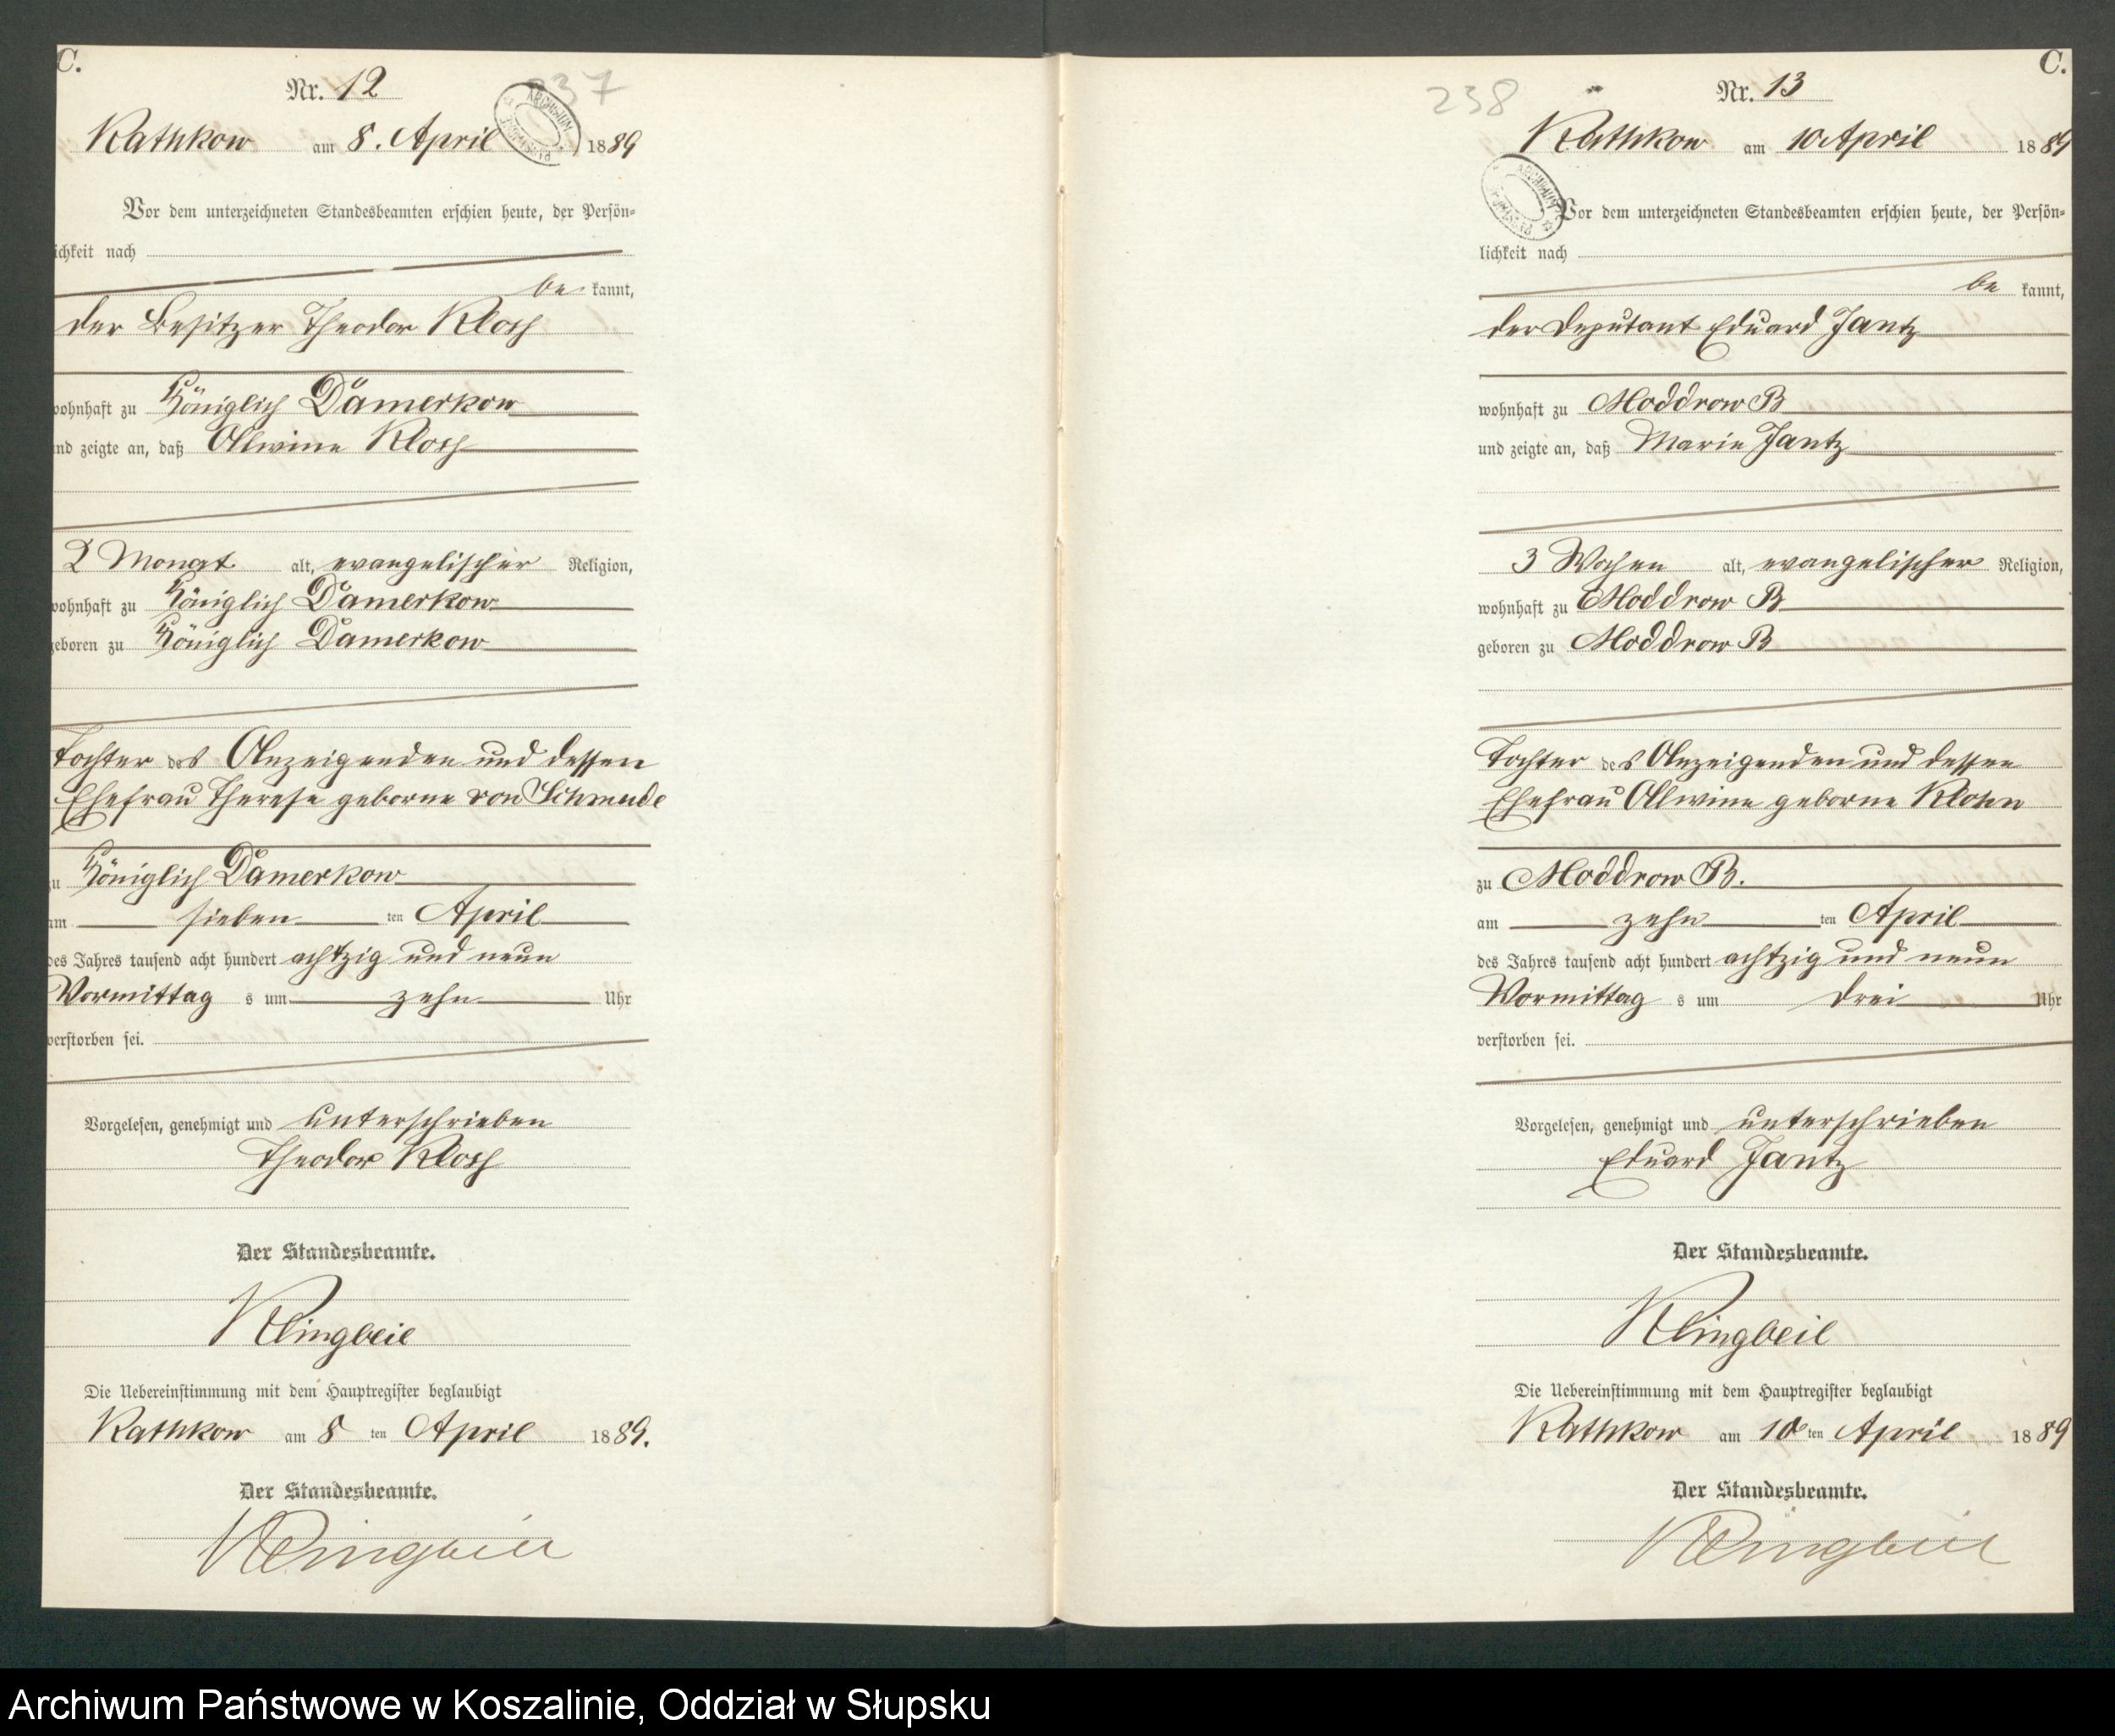 C.
Nr. 12
237
Rathkow am 8. April 1889
Vor dem unterzeichneten Standesbeamten erschien heute, der Persön-
lichkeit nach
be kannt,
der Besitzer Theodor Klosh
wohnhaft zu Königlich Damerkow
und zeigte an, daß Allwine Klosh
2 Monat alt, evangelischer Religion,
wohnhaft zu Königlich Damerkow
geboren zu Königlich Damerkow
Tochter des Anzeigenden und dessen
Ehefrau Therese geborne von Schmude
zu Königlich Damerkow
am sieben ten April
des Jahres tausend acht hundert achtzig und neun
Vormittag s um zehn Uhr
verstorben sei.
Vorgelesen, genehmigt und unterschrieben
Theodor Klosh
Der Standesbeamte.
Klingbeil
Die Uebereinstimmung mit dem Hauptregister beglaubigt
Rathkow am 8 ten April 1889.
Der Standesbeamte.
Klingbeil
C.
238
Nr. 13
Rathkow am 10 April 1889
Vor dem unterzeichneten Standesbeamten erschien heute, der Persön-
lichkeit nach
be kannt,
der Deputant Eduard Jantz
wohnhaft zu Moddrow B
und zeigte an, daß Marie Jantz
3 Wochen alt, evangelischer Religion,
wohnhaft zu Moddrow B
geboren zu Moddrow B
Tochter des Anzeigenden und dessen
Ehefrau Allwine geborne
zu Moddrow B.
am zehn ten April
des Jahres tausend acht hundert achtzig und neun
Vormittag s um drei Uhr
verstorben sei.
Vorgelesen, genehmigt und unterschrieben
Eduard Jantz
Der Standesbeamte.
Klingbeil
Die Uebereinstimmung mit dem Hauptregister beglaubigt
Rathkow am 10 ten April 1889
Der Standesbeamte.
Klingbeil
Archiwum Państwowe w Koszalinie, Oddział w Słupsku